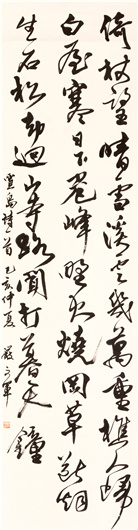 倚杖望晴雪溪雲幾萬重樵人歸
白屋寒日下危峰野火燒岡草斷烟
生石松却迴山寺路聞打暮天鐘
賈島詩一首己亥仲夏